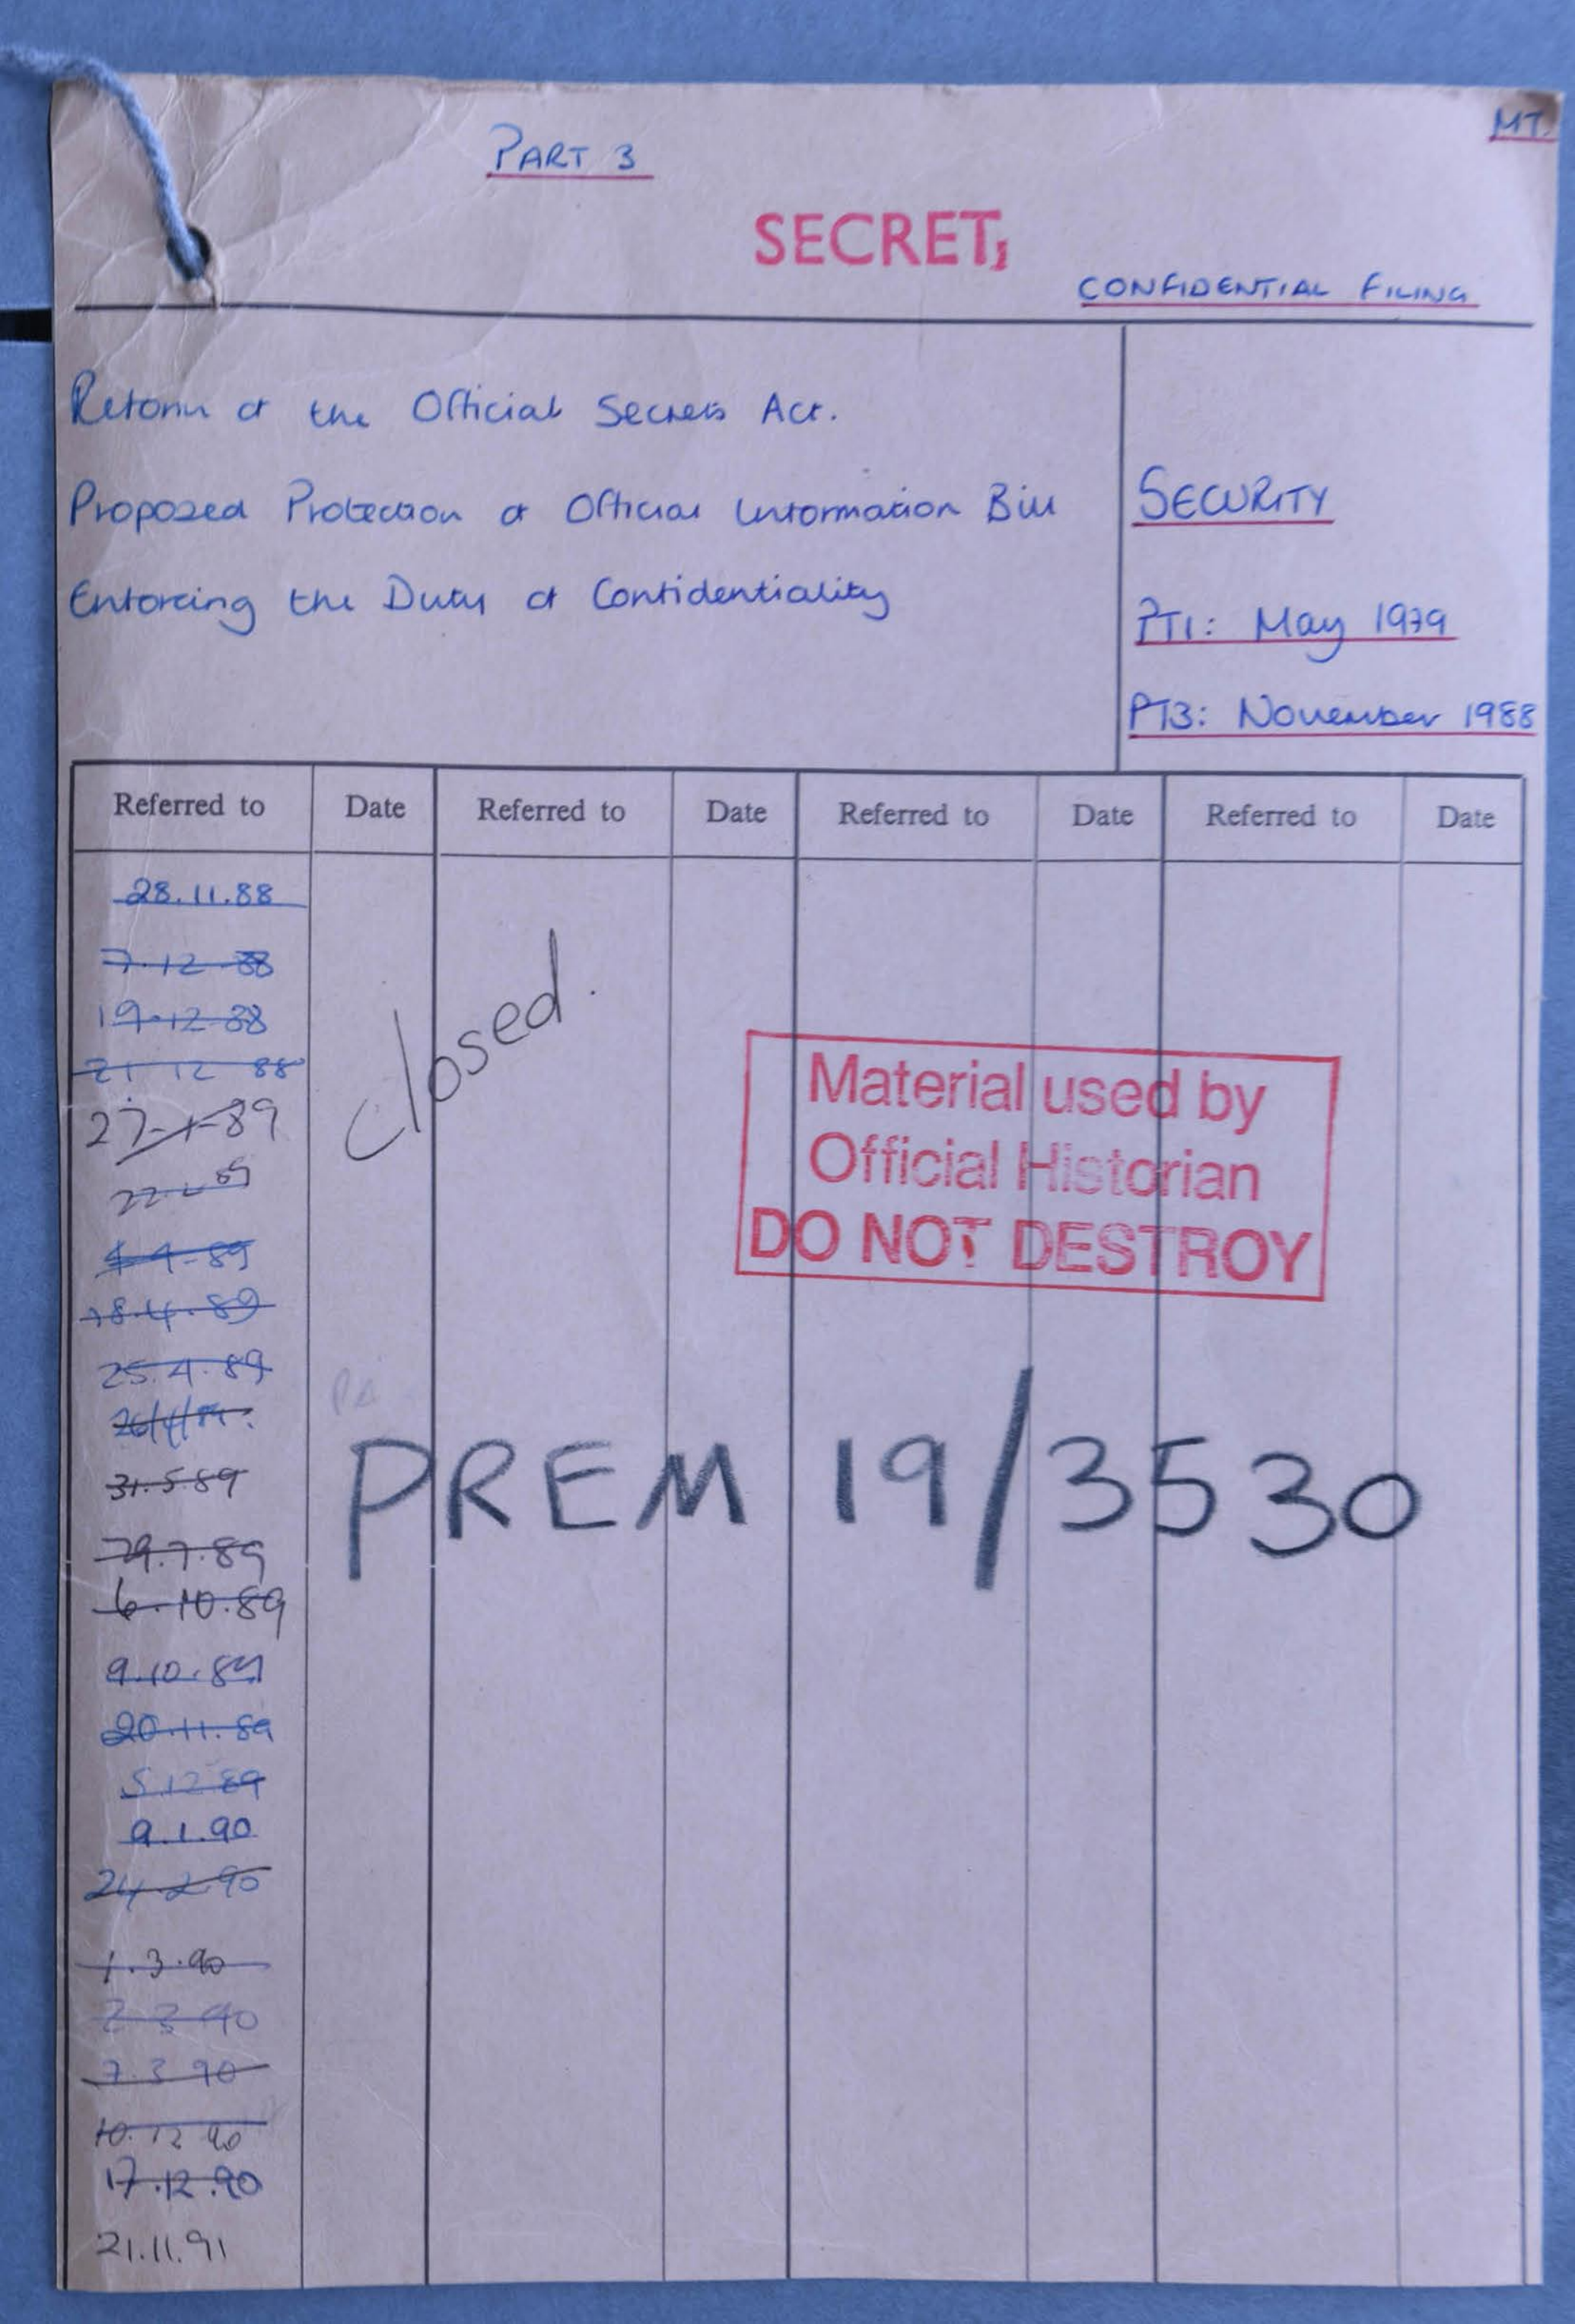 PART 3
MT.
SECRET
CONFIDENTIAL FILING
Reform of the Official Secrets Act.
Proposed Protection of Official Information Bill
Enforcing the Duty of Confidentiality
SECURITY
PT1: May 1979
PT3: November 1988
Referred to Date Referred to Date Referred to Date Referred to Date
28.11.88
7.12.88
19.12.88
21 12 88
27-1-89
4-4-89
18.4.89
25.4.89
26/4/89.
31.5.89
6.10.89
9.10.89
20.11.89
5.12.89
9.1.90
24.2.90
1.3.90
2 3 90
7.3 90
10.12 90
17.12.90
21.11.91
Closed.
Material used by
Official Historian
DO NOT DESTROY
PREM 19/3530